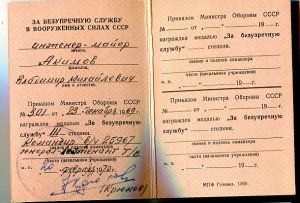 ЗА БЕЗУПРЕЧНУЮ СЛУЖБУ
В ВООРУЖЕННЫХ СИЛАХ СССР
инженер-майор
звание,
Акимов
фамилия,
Владимир Михайлович
имя и отчество
Приказом Министра Обороны СССР
№ 301 от "23" декабря 1969 г.
награжден медалью „За безупречную
службу" III степени.
Командир в/ч 25967
генерал-лейтенант
звание и подпись командира
(части (начальника учреждения)
февраля 1970 г.
(Крюков)
Приказом Министра Обороны СССР
№ от " " 19 г.
награжден медалью „За безупречную
службу" степени.
звание и подпись командира
части (начальника учреждения)
" " 19 г.
Приказом Министра Обороны СССР
№ от " " 19 г.
награжден медалью „За безупречную
службу" степени.
звание и подпись командира
части (начальника учреждения)
" " 19 г.
МПФ Гознака. 1969.